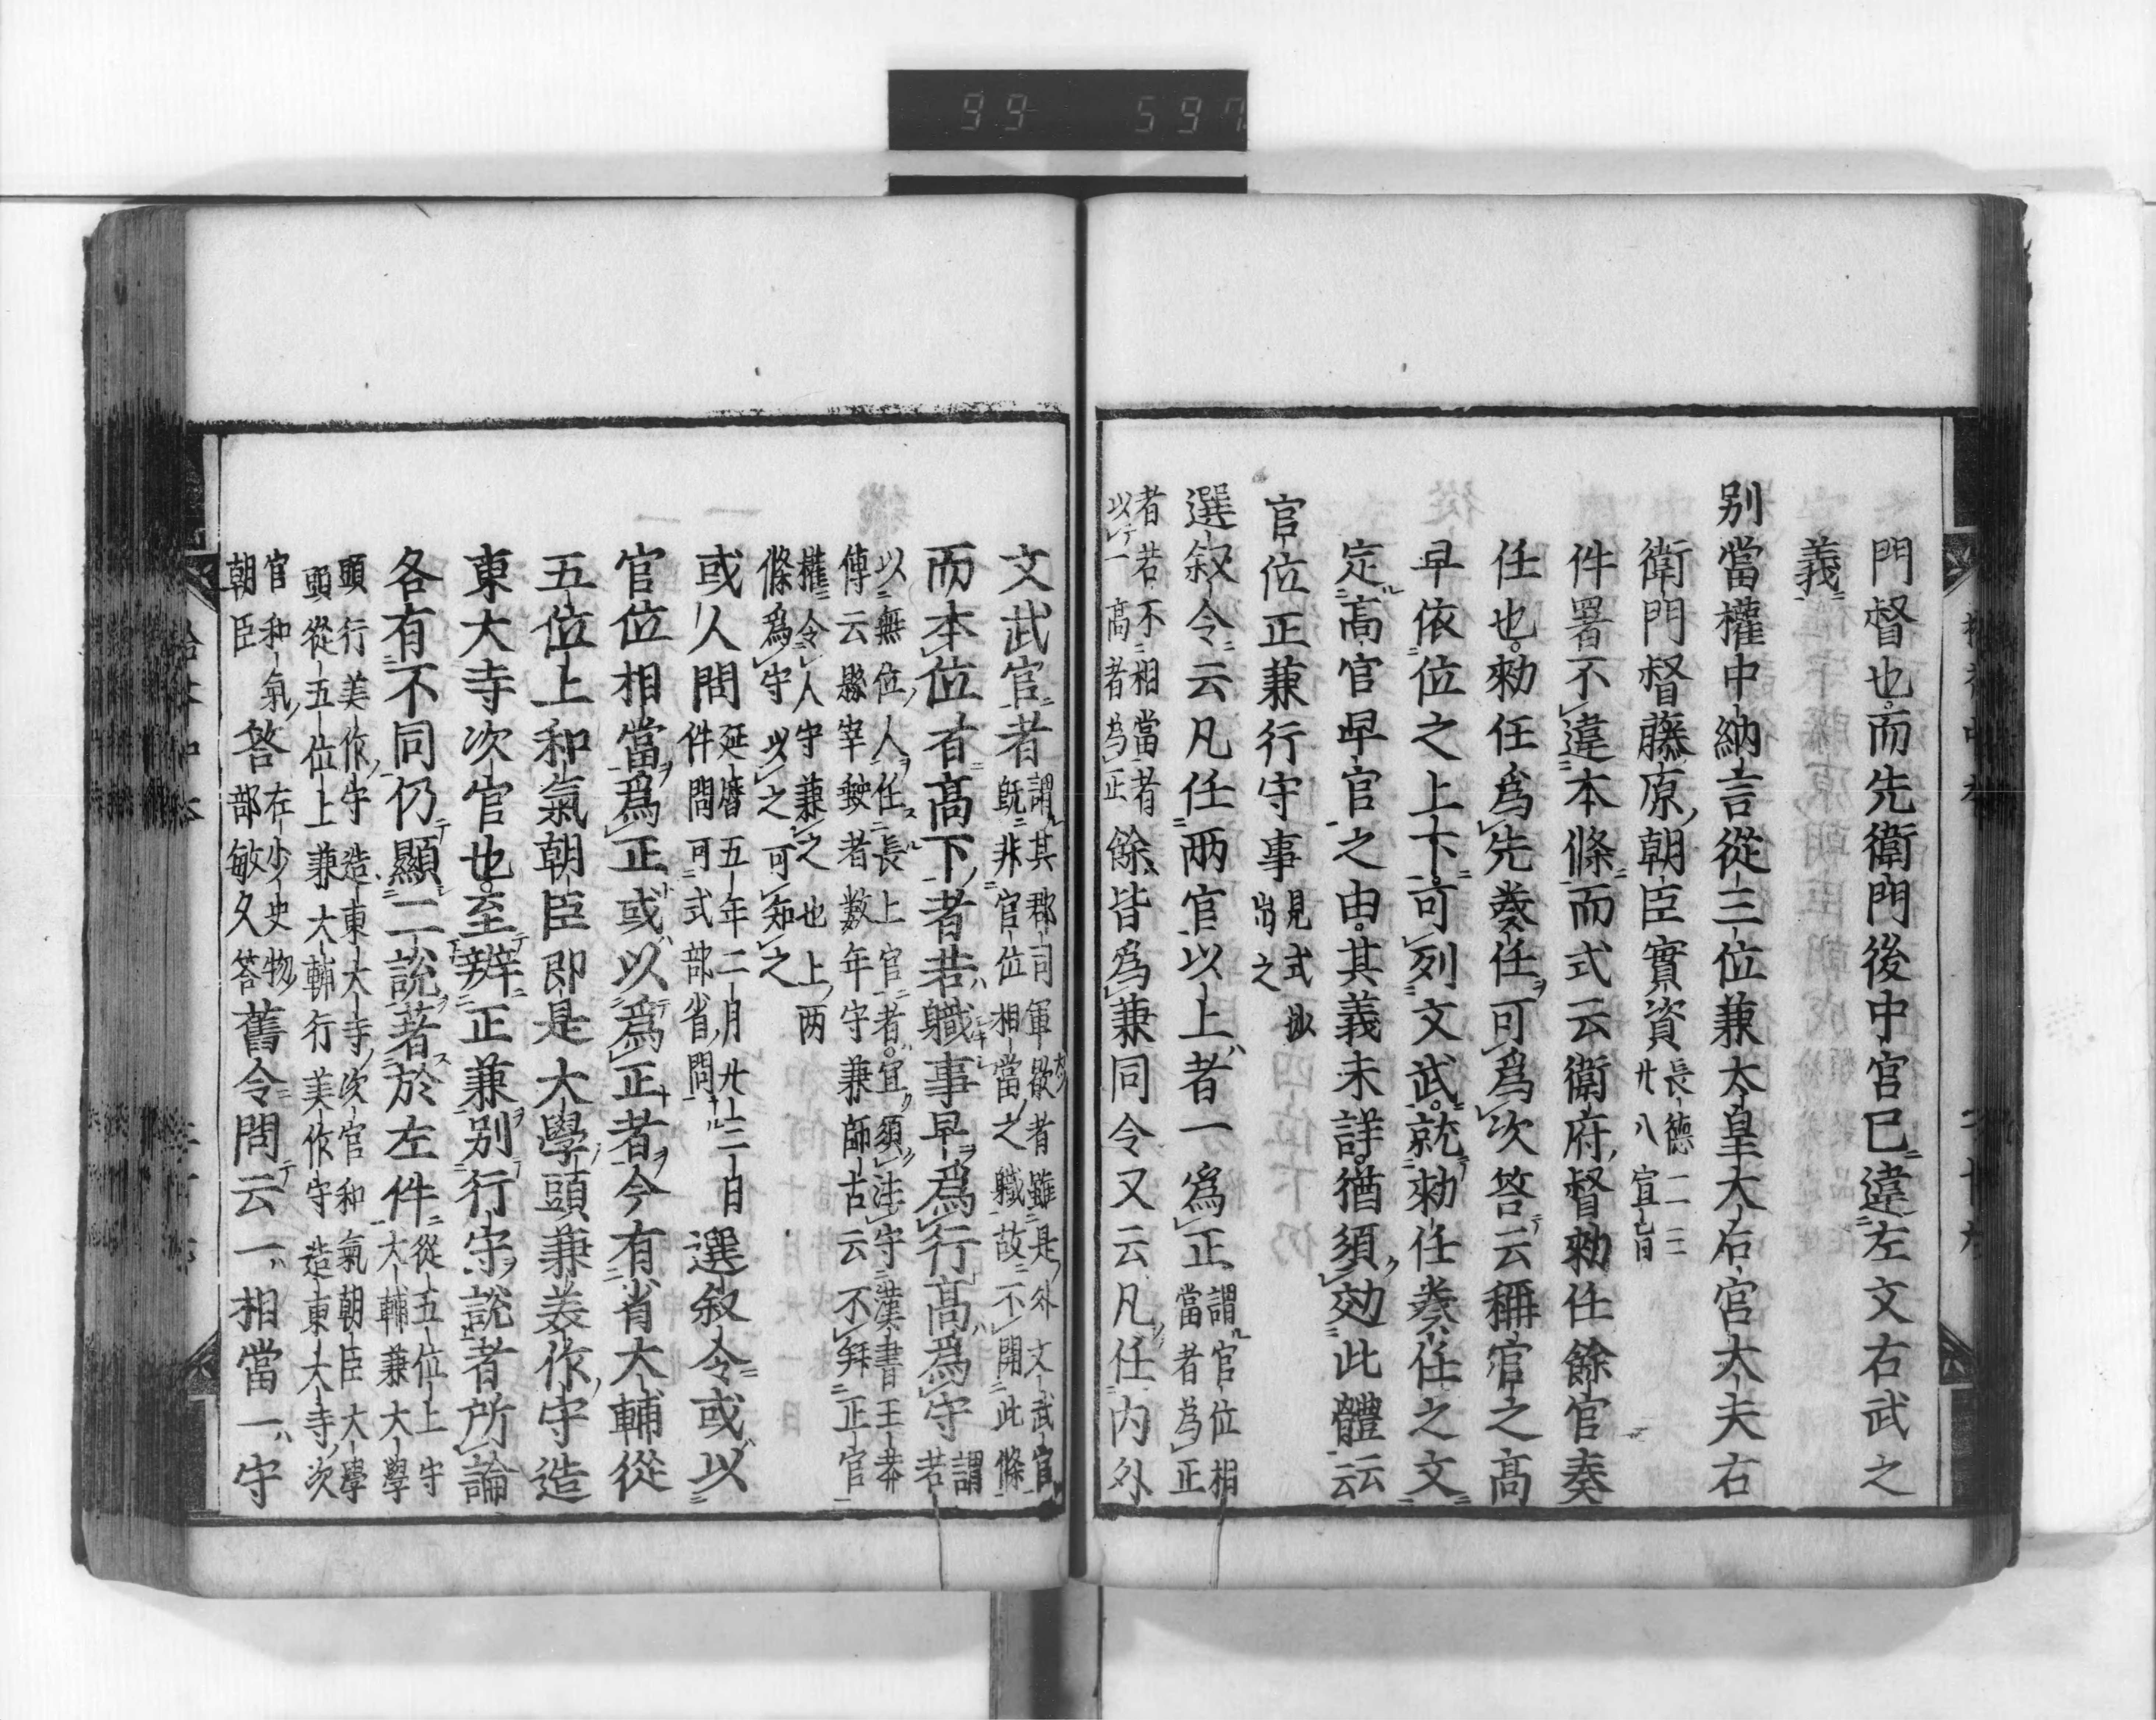 99 597
門督也而先衛門後中官已違左文右武之
義
別當權中納言從三位兼太皇太后宮大夫右
衛門督藤原朝臣實資 長德二二廿八宣旨
件署不違本條而式云衛府督勅任餘官奏
任也勅任爲先奏任可爲次答云稱官之高
早依位之上下可列文武就勅任奏任之文
定高官早官之由其義未詳猶須効此體云云
官位正兼行守事 見式部 出之
選叙令云凡任兩官以上者一爲正 謂官位相當者爲正
者若不相當者以一高者爲正 餘皆爲兼同令又云凡任內外
文武官者 謂其郡司軍毅者雖是外文武官既非官位相當之職故不開此條
而本位有高下者若職事早爲行高爲守 謂若
以無位人任長上官者宜須注守漢書王莽傳云縣宰缺者數年守兼師古云不拜正官
權令人守兼之也上兩條爲守以之可知之
或人問 延曆五年二月廿三日件問可式部省問 選叙令或以
官位相當爲正或以爲正者今有省大輔從
五位上和氣朝臣即是大學頭兼美作守造
東大寺次官也至辨正兼別行守說者所論
各有不同仍顯二說著於左件 從五位上守大輔兼大學
頭行美作守造東大寺次官和氣朝臣大學頭從五位上兼大輔行美作守造東大寺次
官和氣朝臣 答 在少史物部敏久答 舊令問云一相當一守